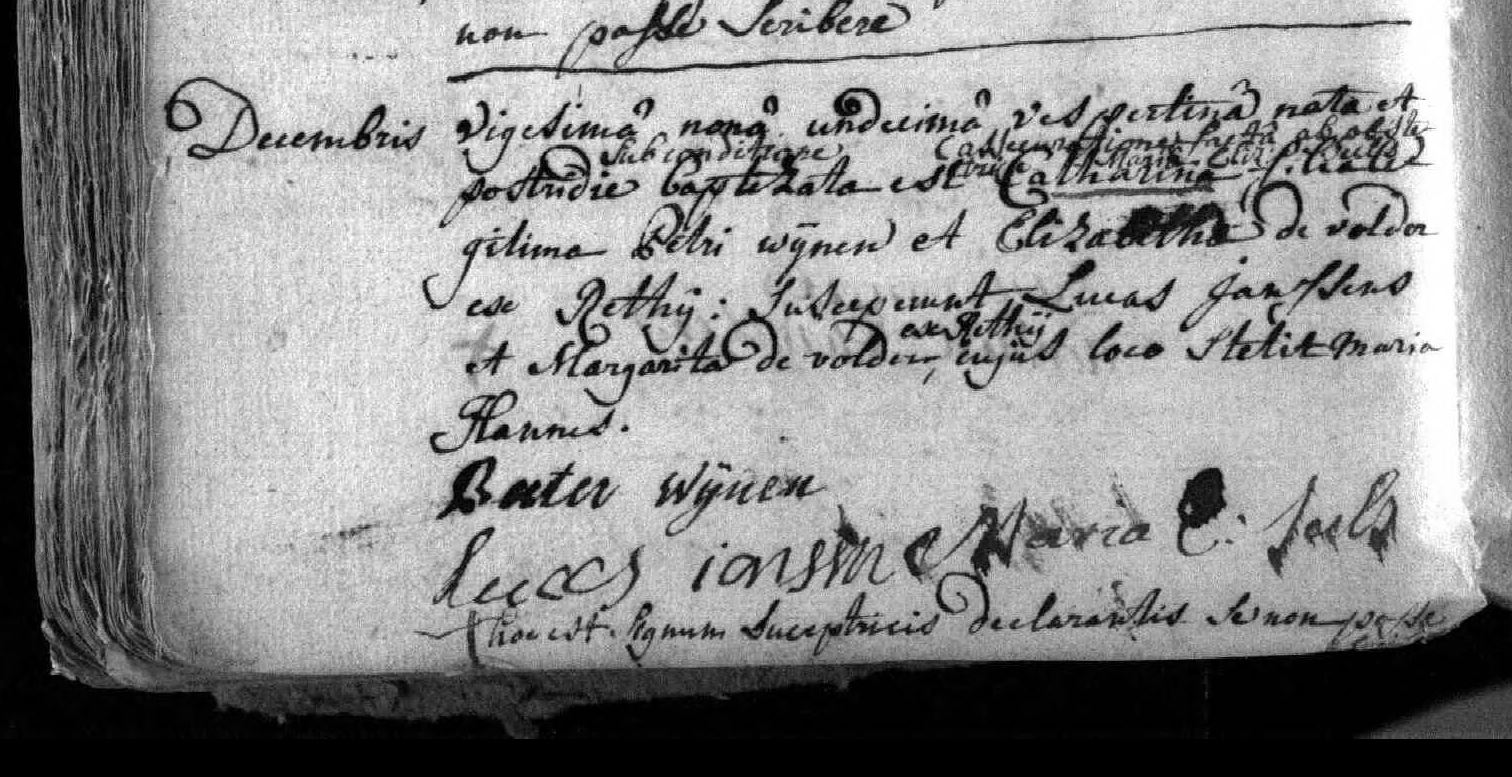 non posse scribere
Decembris vigesimâ nonâ undecimâ vespertinâ nata et
sub conditione
postridie baptizata est Catharina filia le
gitima Petri wÿnen et Elizabetha de volder
ex Rethÿ: Susceperunt Lucas janssens
ex Rethÿ
et Margarita de volder, cujus loco stetit Maria
Hannes.
Peeter wÿnen
Lucas ianssen Maria C:
hoc est signum susceptricis declarantis se non posse